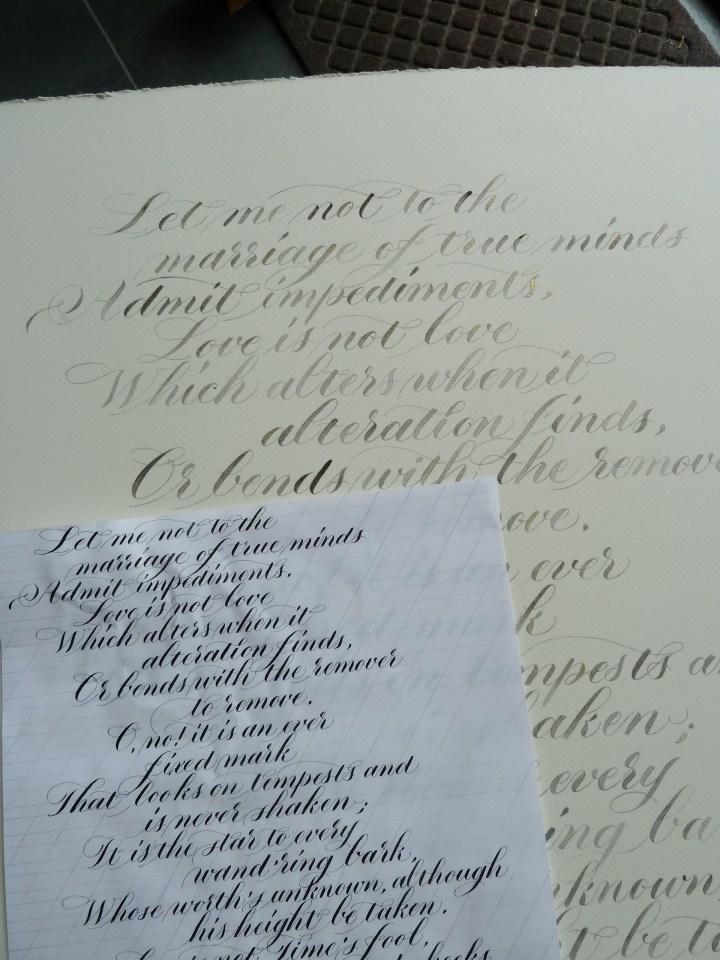 Let me not to the
marriage of true minds
Admit impediments,
Love is not love
Which alters when it
alteration finds,
Or bends with the remove
move.
an ever
k
mpests a
aken;
every
ing ba
known
t be t
Let me not to the
marriage of true minds
Admit impediments.
Love is not love
Which alters when it
alteration finds,
Or bends with the remover
to remove.
O, no! it is an ever
fixed mark
That looks on tempests and
is never shaken;
It is the star to every
wand'ring bark,
Whose worth's unknown, although
his height be taken.
not Time's fool,